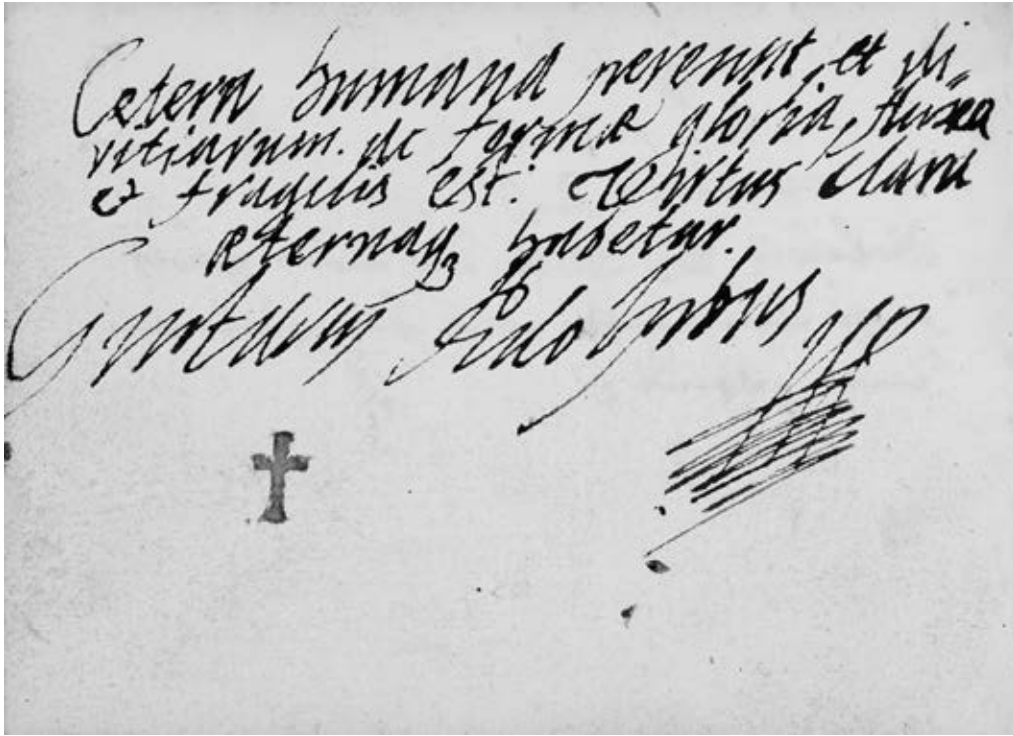 Cetera humana pereunt, et di-
vitiarum. ac formæ gloria, fluxa
et fragilis est. Virtus clara
æternaqꝫ habetur.
Gustavus Adolphus